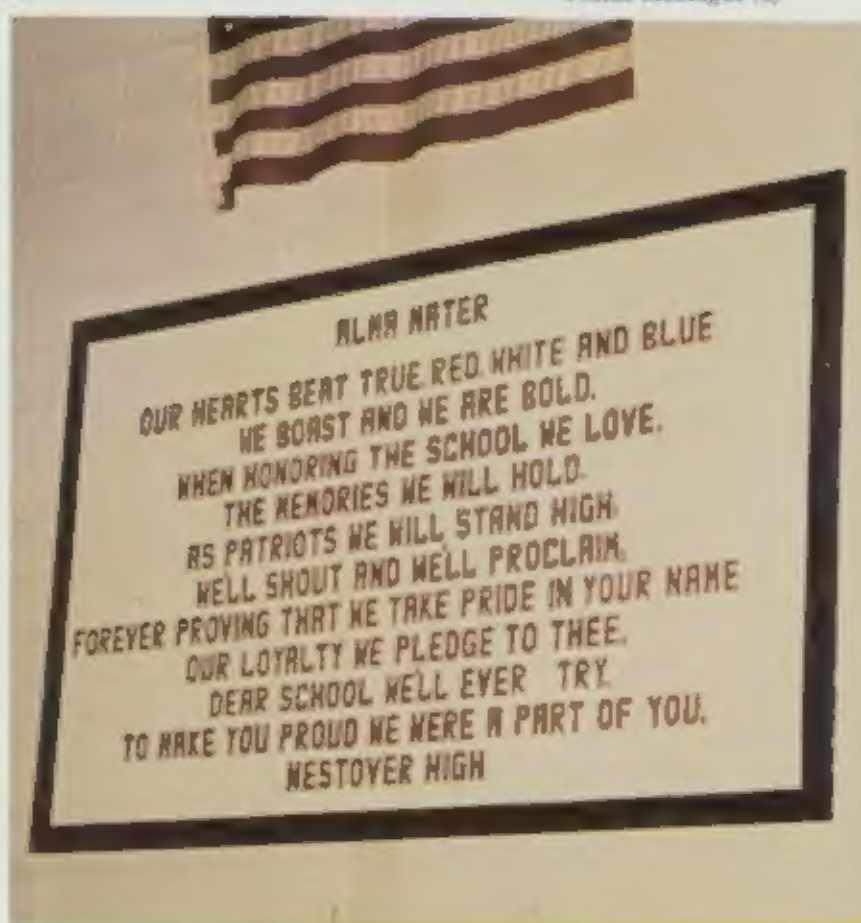 ALMA MATER
OUR HEARTS BEAT TRUE. RED. WHITE AND BLUE
WE BOAST AND WE ARE BOLD.
WHEN HONORING THE SCHOOL WE LOVE.
THE MEMORIES WE WILL HOLD.
AS PATRIOTS WE WILL STAND HIGH.
WE'LL SHOUT AND WE'LL PROCLAIM.
FOREVER PROVING THAT WE TAKE PRIDE IN YOUR NAME
OUR LOYALTY WE PLEDGE TO THEE.
DEAR SCHOOL WE'LL EVER TRY.
TO MAKE YOU PROUD WE WERE A PART OF YOU.
WESTOVER HIGH